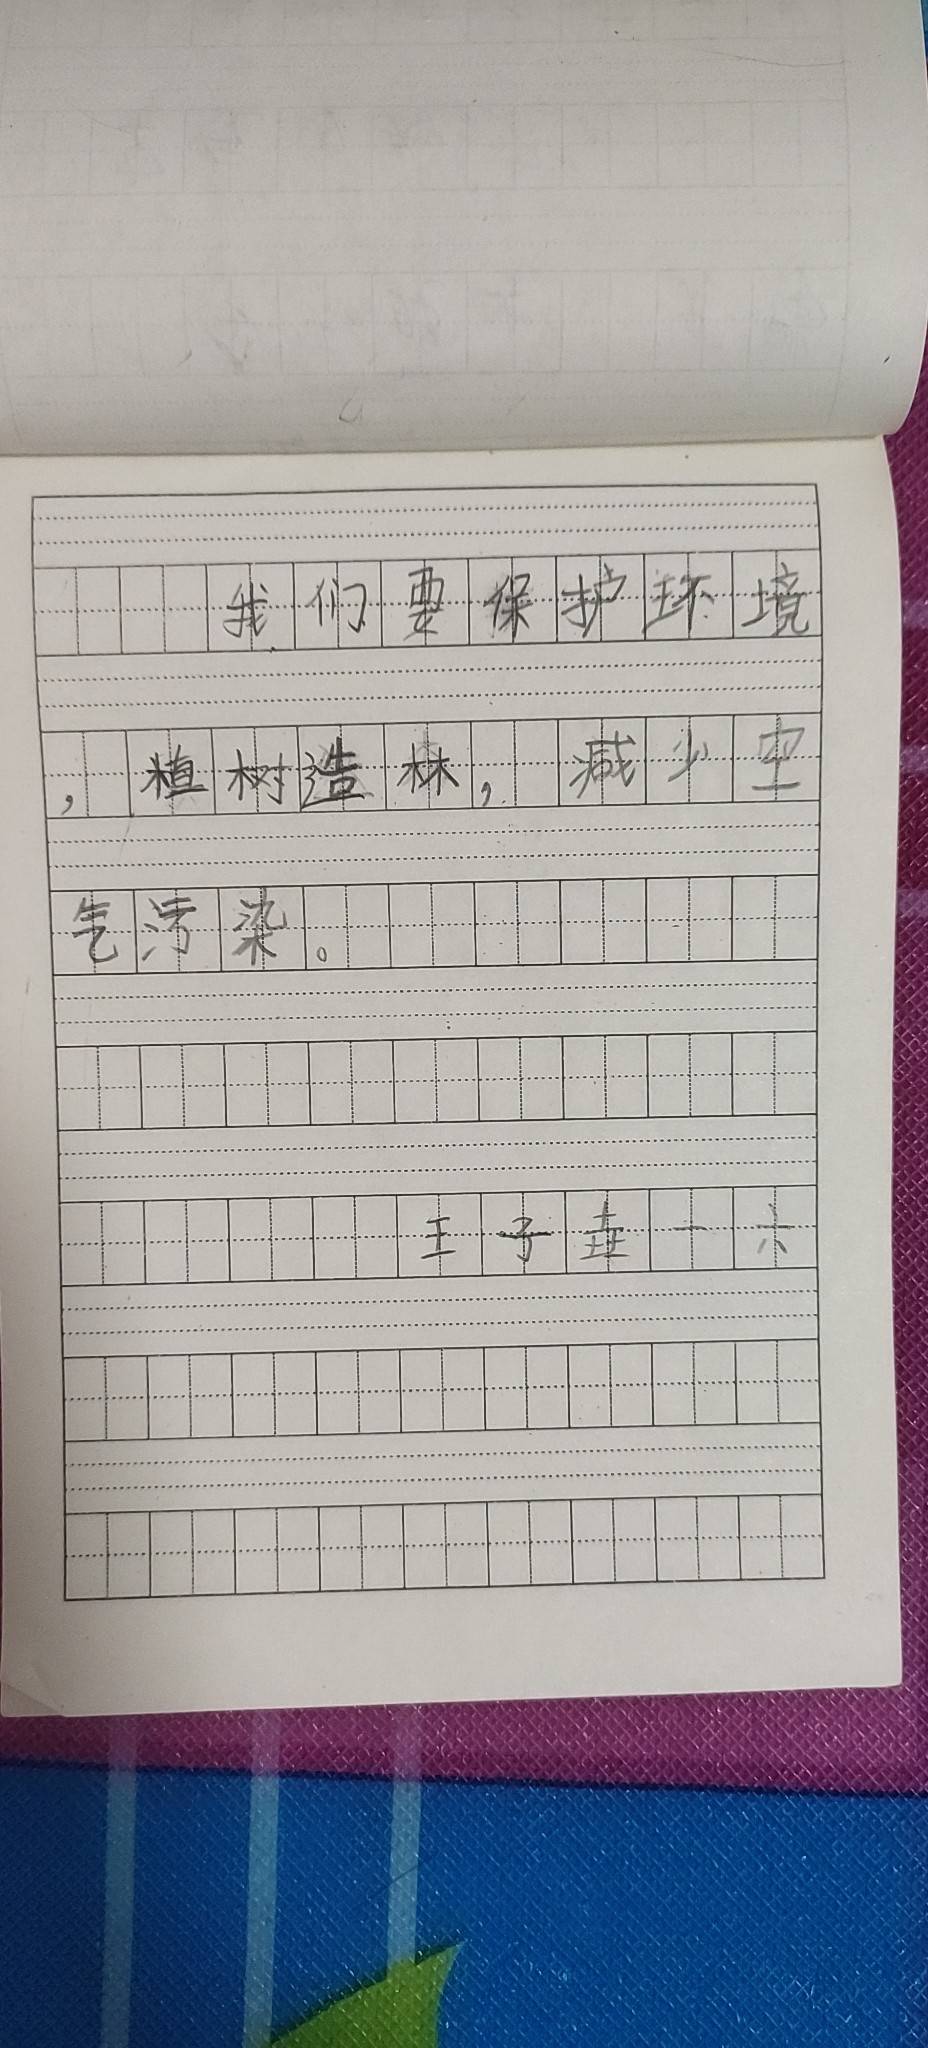 我们要保护环境
，植树造林，减少空
气污染。
王子垚一六